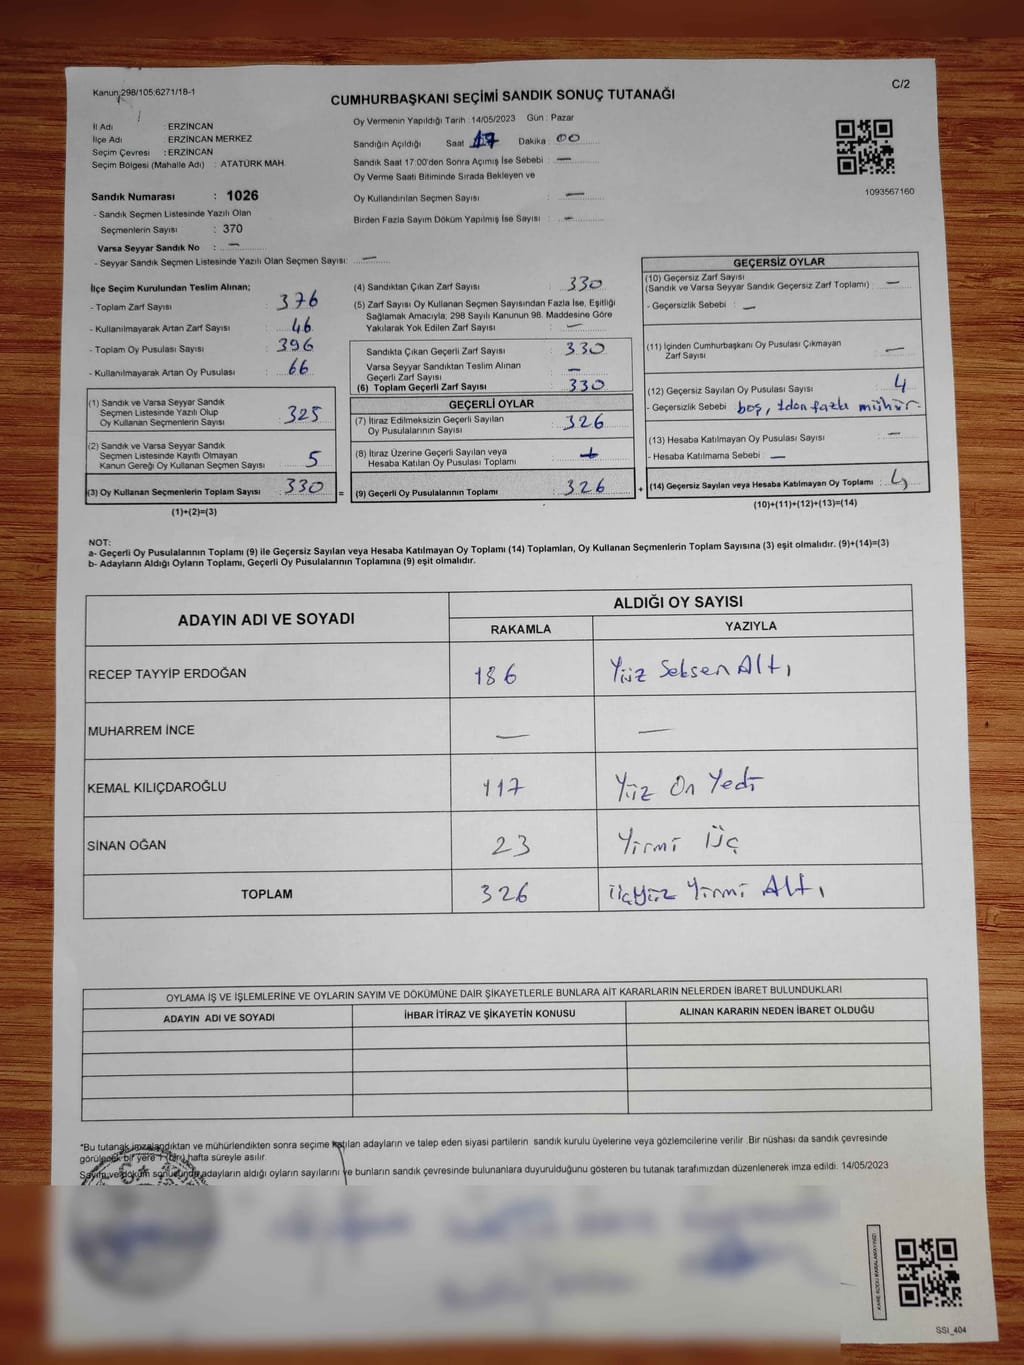 Kanun 298/105 6271/18-1
C/2
CUMHURBAŞKANI SEÇİMİ SANDIK SONUÇ TUTANAĞI
İl Adı : ERZİNCAN
İlçe Adı : ERZİNCAN MERKEZ
Seçim Çevresi : ERZİNCAN
Seçim Bölgesi (Mahalle Adı) : ATATÜRK MAH.
Sandık Numarası : 1026
- Sandık Seçmen Listesinde Yazılı Olan
Seçmenlerin Sayısı : 370
Varsa Seyyar Sandık No : —
- Seyyar Sandık Seçmen Listesinde Yazılı Olan Seçmen Sayısı: —
Oy Vermenin Yapıldığı Tarih : 14/05/2023 Gün : Pazar
Sandığın Açıldığı Saat 17 Dakika : 00
Sandık Saat 17:00'den Sonra Açımış İse Sebebi : —
Oy Verme Saati Bitiminde Sırada Bekleyen ve
Oy Kullandırılan Seçmen Sayısı : —
Birden Fazla Sayım Döküm Yapılmış İse Sayısı : —
1093567160
İlçe Seçim Kurulundan Teslim Alınan;
- Toplam Zarf Sayısı : 376
- Kullanılmayarak Artan Zarf Sayısı : 46
- Toplam Oy Pusulası Sayısı : 396
- Kullanılmayarak Artan Oy Pusulası : 66
(1) Sandık ve Varsa Seyyar Sandık
Seçmen Listesinde Yazılı Olup
Oy Kullanan Seçmenlerin Sayısı : 325
(2) Sandık ve Varsa Seyyar Sandık
Seçmen Listesinde Kayıtlı Olmayan
Kanun Gereği Oy Kullanan Seçmen Sayısı : 5
(3) Oy Kullanan Seçmenlerin Toplam Sayısı : 330 =
(1)+(2)=(3)
(4) Sandıktan Çıkan Zarf Sayısı : 330
(5) Zarf Sayısı Oy Kullanan Seçmen Sayısından Fazla İse, Eşitliği
Sağlamak Amacıyla, 298 Sayılı Kanunun 98. Maddesine Göre
Yakılarak Yok Edilen Zarf Sayısı : —
Sandıkta Çıkan Geçerli Zarf Sayısı : 330
Varsa Seyyar Sandıktan Teslim Alınan
Geçerli Zarf Sayısı : —
(6) Toplam Geçerli Zarf Sayısı : 330
GEÇERLİ OYLAR
(7) İtiraz Edilmeksizin Geçerli Sayılan
Oy Pusulalarının Sayısı : 326
(8) İtiraz Üzerine Geçerli Sayılan veya
Hesaba Katılan Oy Pusulası Toplamı :
(9) Geçerli Oy Pusulalarının Toplamı : 326 +
GEÇERSİZ OYLAR
(10) Geçersiz Zarf Sayısı
(Sandık ve Varsa Seyyar Sandık Geçersiz Zarf Toplamı) : —
- Geçersizlik Sebebi : —
(11) İçinden Cumhurbaşkanı Oy Pusulası Çıkmayan
Zarf Sayısı : —
(12) Geçersiz Sayılan Oy Pusulası Sayısı : 4
- Geçersizlik Sebebi boş, 1den fazla mühür.
(13) Hesaba Katılmayan Oy Pusulası Sayısı : —
- Hesaba Katılmama Sebebi : —
(14) Geçersiz Sayılan veya Hesaba Katılmayan Oy Toplamı : 4
(10)+(11)+(12)+(13)=(14)
NOT:
a- Geçerli Oy Pusulalarının Toplamı (9) ile Geçersiz Sayılan veya Hesaba Katılmayan Oy Toplamı (14) Toplamları, Oy Kullanan Seçmenlerin Toplam Sayısına (3) eşit olmalıdır. (9)+(14)=(3)
b- Adayların Aldığı Oyların Toplamı, Geçerli Oy Pusulalarının Toplamına (9) eşit olmalıdır.
ADAYIN ADI VE SOYADI ALDIĞI OY SAYISI
RAKAMLA YAZIYLA
RECEP TAYYİP ERDOĞAN 186 Yüz Seksen Altı
MUHARREM İNCE — —
KEMAL KILIÇDAROĞLU 117 Yüz On Yedi
SİNAN OĞAN 23 Yirmi Üç
TOPLAM 326 üçyüz Yirmi Altı
OYLAMA İŞ VE İŞLEMLERİNE VE OYLARIN SAYIM VE DÖKÜMÜNE DAİR ŞİKAYETLERLE BUNLARA AİT KARARLARIN NELERDEN İBARET BULUNDUKLARI
ADAYIN ADI VE SOYADI İHBAR İTİRAZ VE ŞİKAYETİN KONUSU ALINAN KARARIN NEDEN İBARET OLDUĞU
*Bu tutanak imzalandıktan ve mühürlendikten sonra seçime katılan adayların ve talep eden siyasi partilerin sandık kurulu üyelerine veya gözlemcilerine verilir. Bir nüshası da sandık çevresinde
görülecek bir yere 1 (bir) hafta süreyle asılır.
Sayım ve döküm sonunda adayların aldığı oyların sayılarını ve bunların sandık çevresinde bulunanlara duyurulduğunu gösteren bu tutanak tarafımızdan düzenlenerek imza edildi. 14/05/2023
KARE KODU KARALAMAYINIZ!
SSI_404